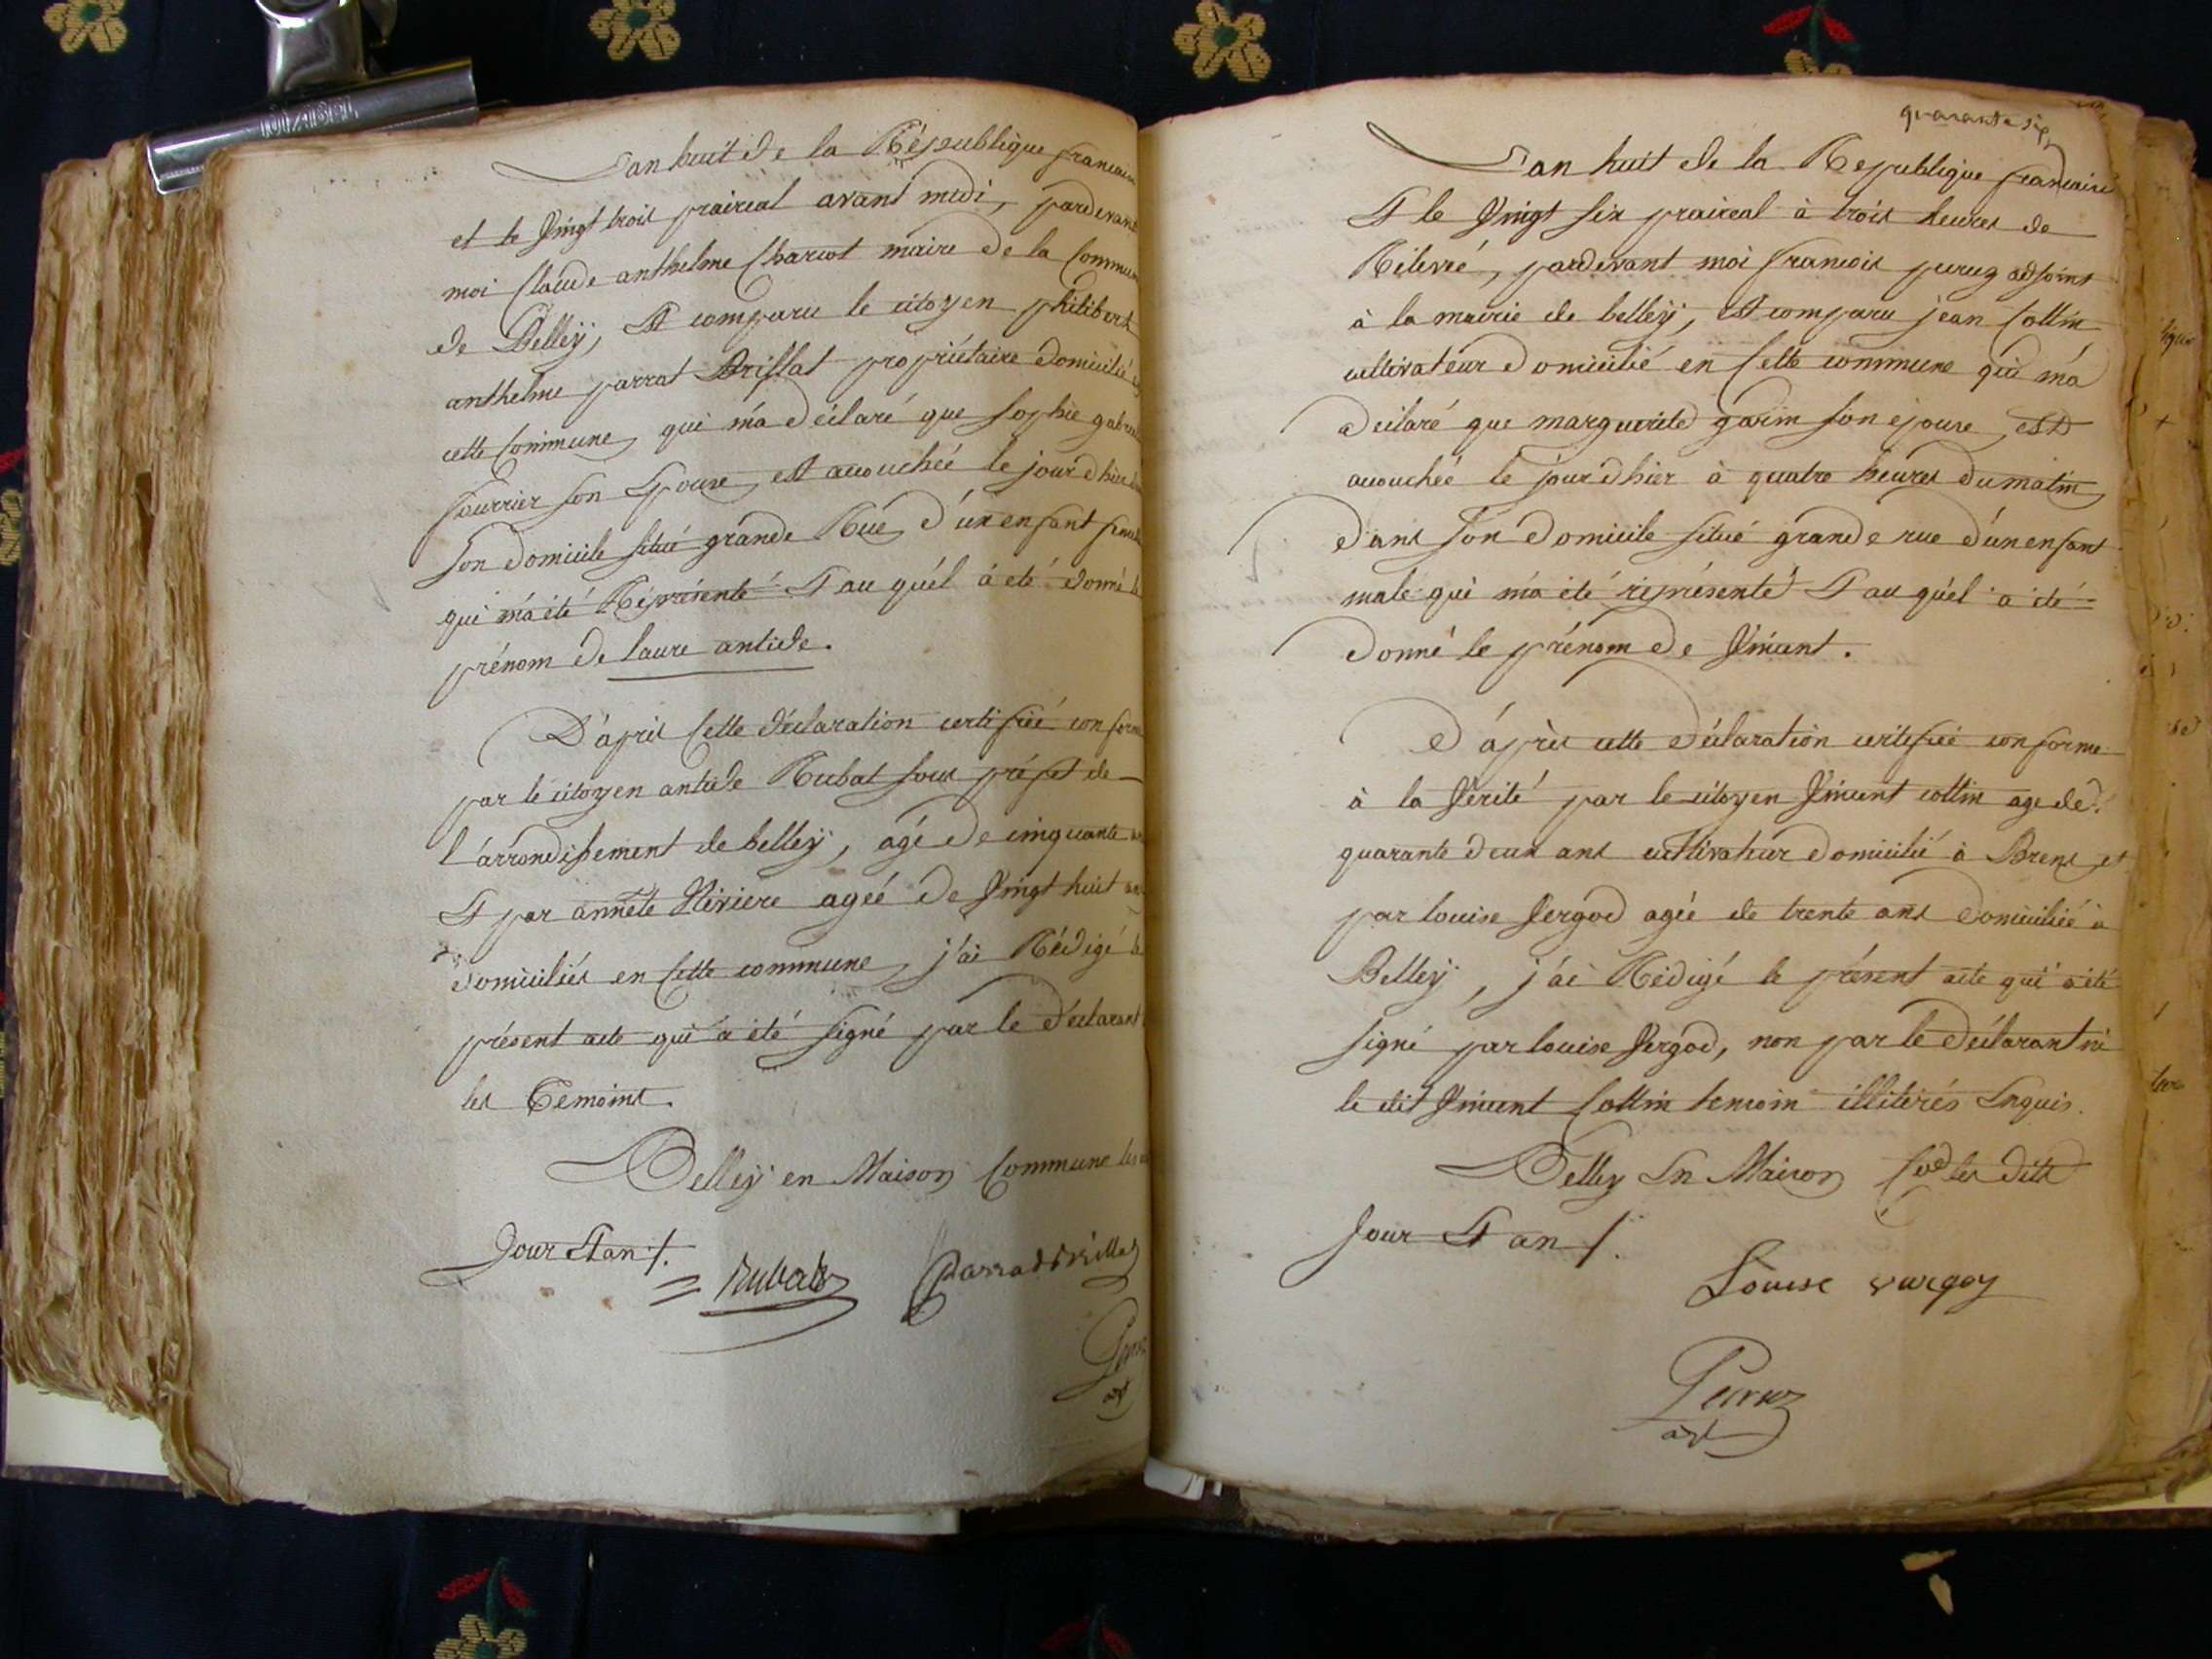 L'an huit de la République francaise
et le Vingt trois praireal avant midi, pardevant
moi Claude anthelme Charcot maire de la Commune
de Belley, Est comparu le citoyen philibert
anthelme parrat Brillat propriétaire domicilié
cette Commune, qui m'a déclaré que Sophie
fourrier son Epouse, est accouchéé le jour d'hier
son domicile situé grande Rüe, d'un enfant
qui m'a été Réprésenté Et au quél à eté donné le
prénom de laure antide.
D'après Cette déclaration certifiéé conforme
par le citoyen antide Rubat sous préfet de
l'arrondissement de belley, agé de cinquante
Et par annéte Riviere agéé de Vingt huit ans
domiciliés en Cette commune, j'ai Rédigé le
présent acte qui a été signé par le déclarant
les Temoins.
Belley en Maison Commune les
Jour Et an /.
Rubat Parrat Brillat
quarante six
L'an huit de la Republique francaise
Et le Vingt six praireal à trois heures de
Rélevé, pardevant moi francois peruz adjoint
à la mairie de belley, est comparu jean Cottin
cultivateur domicilié en Cette commune qui m'a
déclaré que marguerite garin son épouse, est
accouchéé le jour d'hier à quatre heures du matin
dans son domicile situé grande rue d'un enfant
male qui m'a été réprésenté Et au quél a été
donné le prénom de Vincent.
d'après cette déclaration certifiéé conforme
à la Vérité par le citoyen Vincent cottin age de
quarante deux ans cultivateur domicilié à Brens et
par louise Vergod agéé de trente ans domiciliéé à
Belley, j'ai Rédigé le présent acte qui a été
signé par louise Vergod, non par le déclarant ni
le dit Vincent Cottin temoin illitérés Enquis.
Belley En Maison les dits
Jour Et an /.
Louise vurgoy
Perruz
adj